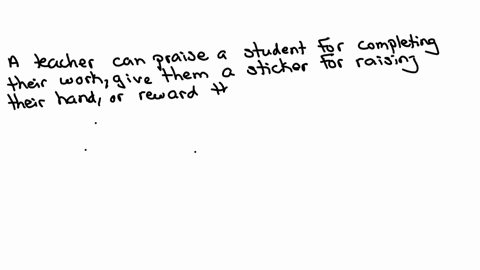 A teacher can praise a student for completing
their work, give them a sticker for raising
their hand, or reward th